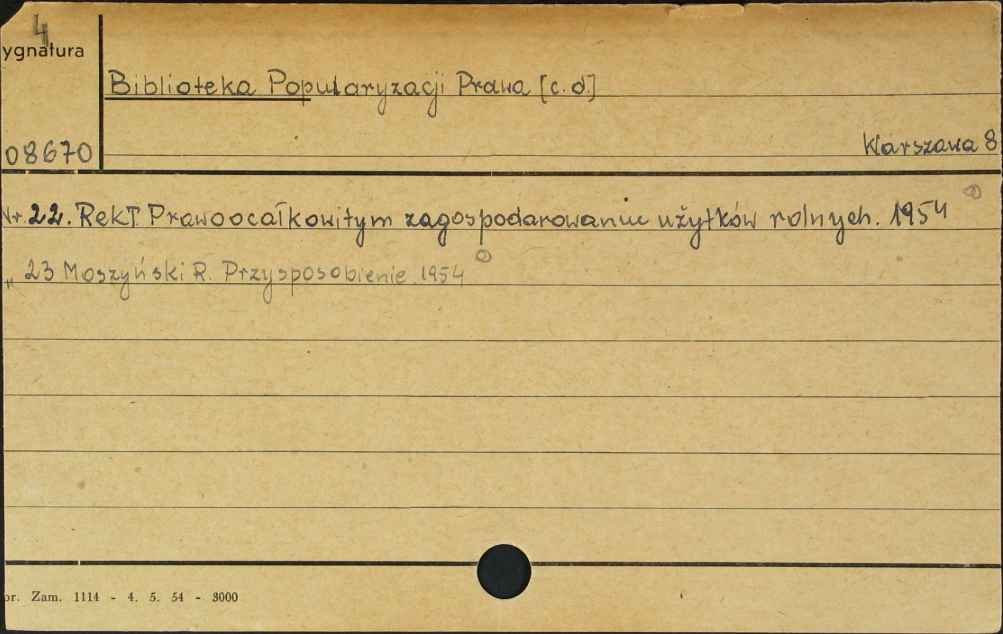 4
ygnatura
Biblioteka Popularyzacji Prawa [c.d.]
08670
Warszawa 8
Nr. 22. Rek T. Prawo o całkowitym zagospodarowaniu użytków rolnych. 1954
" 23 Moszyński R. Przysposobienie. 1954
or. Zam. 1114 - 4. 5. 54 - 3000